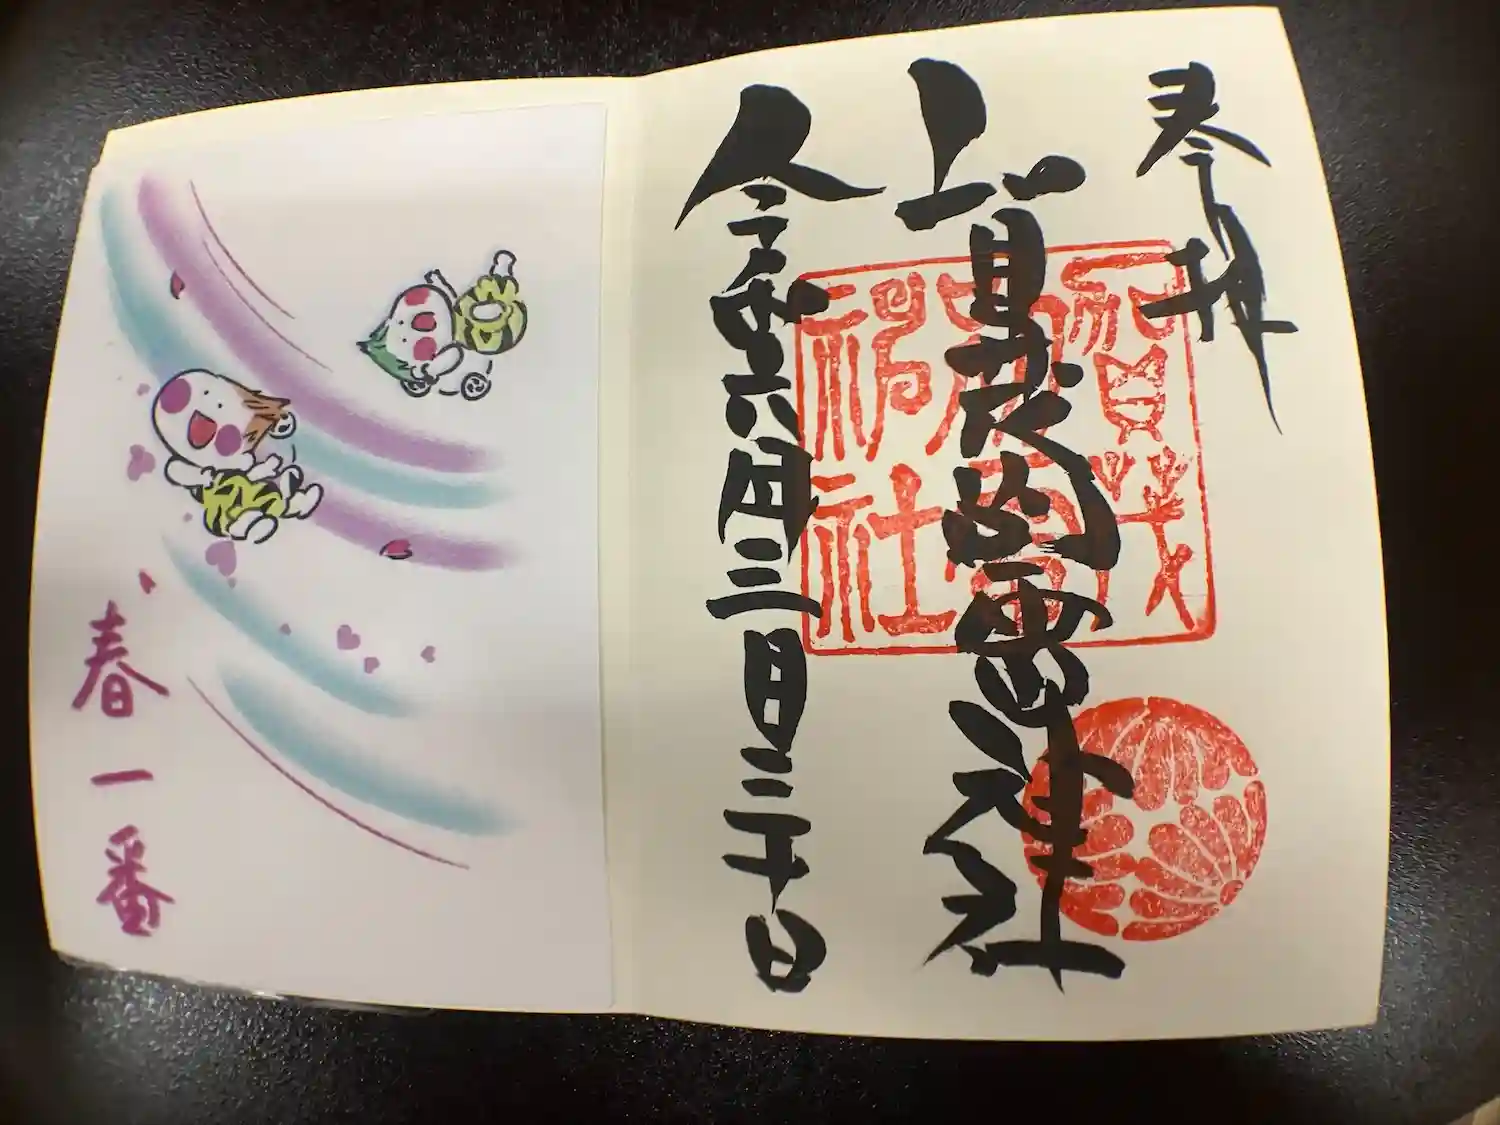 奉拝
賀茂別雷神社
令和六年三月三十日
賀茂
別雷
神社
春一番